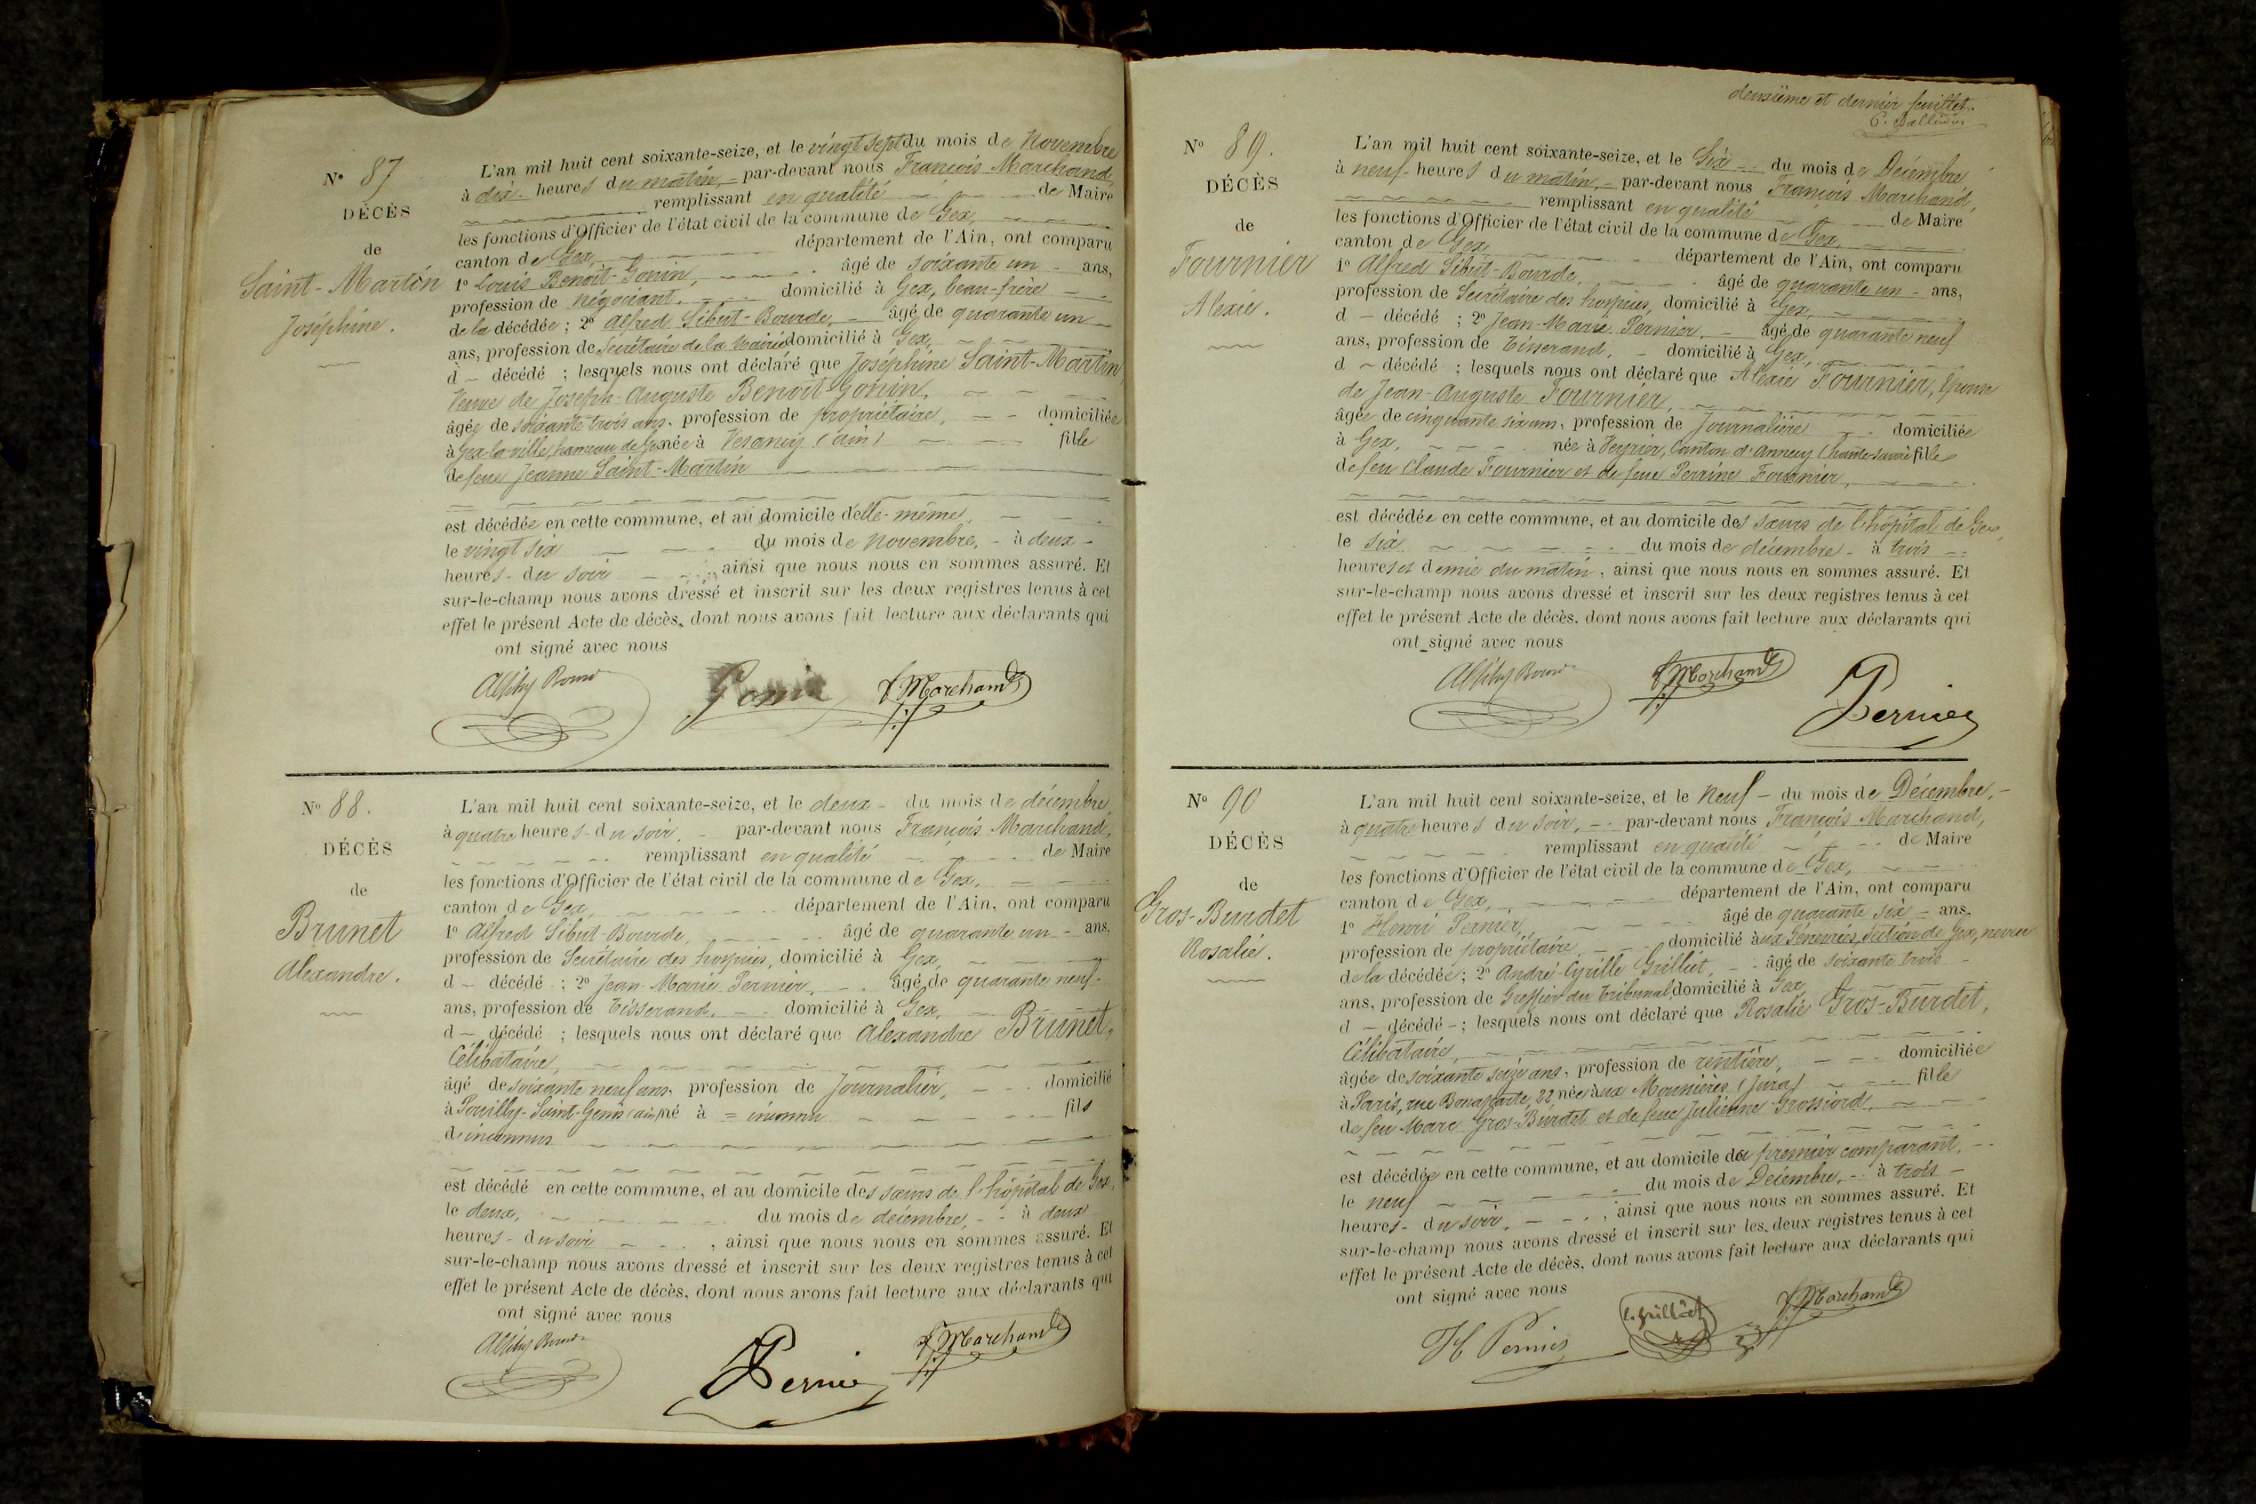 N° 87
DÉCÈS
de
Saint-Martin
Joséphine.
L'an mil huit cent soixante-seize, et le vingt sept du mois de Novembre
à dix heures du matin, par-devant nous François Marchand,
remplissant en qualité de Maire
les fonctions d'Officier de l'état civil de la commune de Gex,
canton de Gex, département de l'Ain, ont comparu
1° Louis Benoît-Gonin, âgé de soixante un ans,
profession de négociant, domicilié à Gex, beau-frère
de la décédée ; 2° Alfred Sibut-Bourde, âgé de quarante un
ans, profession de Secrétaire de la Mairie domicilié à Gex,
d décédé ; lesquels nous ont déclaré que Joséphine Saint-Martin,
Veuve de Joseph-Auguste Benoît-Gonin,
âgée de soixante trois ans, profession de propriétaire, domiciliée
à Gex-la-ville, hameau de Gex née à Vesancy (Ain) fille
de feue Jeanne Saint-Martin
est décédée en cette commune, et au domicile d'elle-même,
le vingt six du mois de novembre, à deux
heures du soir ainsi que nous nous en sommes assuré. Et
sur-le-champ nous avons dressé et inscrit sur les deux registres tenus à cet
effet le présent Acte de décès, dont nous avons fait lecture aux déclarants qui
ont signé avec nous
Gonin F. Marchand
N° 88.
DÉCÈS
de
Brunet
Alexandre.
L'an mil huit cent soixante-seize, et le deux du mois de décembre
à quatre heures du soir, par-devant nous François Marchand,
remplissant en qualité de Maire
les fonctions d'Officier de l'état civil de la commune de Gex,
canton de Gex, département de l'Ain, ont comparu
1° Alfred Sibut-Bourde, âgé de quarante un ans,
profession de Secrétaire des hospices, domicilié à Gex,
d décédé ; 2° Jean-Marie Pernier, âgé de quarante neuf
ans, profession de Tisserand, domicilié à Gex,
d décédé ; lesquels nous ont déclaré que Alexandre Brunet,
Célibataire,
âgé de soixante neuf ans, profession de Journalier, domicilié
à Pouilly-Saint-Genis (ain) né à = inconnu fils
d'inconnus
est décédé en cette commune, et au domicile des sœurs de l'hôpital de Gex,
le deux, du mois de décembre, à deux
heures du soir , ainsi que nous nous en sommes assuré. Et
sur-le-champ nous avons dressé et inscrit sur les deux registres tenus à cet
effet le présent Acte de décès, dont nous avons fait lecture aux déclarants qui
ont signé avec nous
Pernier F. Marchand
deuxième et dernier feuillet.
N° 89.
DÉCÈS
de
Fournier
Alexie.
L'an mil huit cent soixante-seize, et le Six du mois de Décembre
à neuf heures du matin, par-devant nous François Marchand,
remplissant en qualité de Maire
les fonctions d'Officier de l'état civil de la commune de Gex,
canton de Gex, département de l'Ain, ont comparu
1° Alfred Sibut-Bourde, âgé de quarante un ans,
profession de Secrétaire des hospices, domicilié à Gex,
d décédé ; 2° Jean-Marie Pernier, âgé de quarante neuf
ans, profession de Tisserand, domicilié à Gex,
d décédé ; lesquels nous ont déclaré que Alexie Fournier, Epouse
de Jean-Auguste Fournier,
âgée de cinquante six ans, profession de Journalière domiciliée
à Gex, née à Veyrier, Canton d'Annecy (haute-savoie) fille
de feu Claude Fournier et de feue Perrine Fournier,
est décédée en cette commune, et au domicile des sœurs de l'hôpital de Gex,
le six du mois de décembre à trois
heures et demie du matin, ainsi que nous nous en sommes assuré. Et
sur-le-champ nous avons dressé et inscrit sur les deux registres tenus à cet
effet le présent Acte de décès, dont nous avons fait lecture aux déclarants qui
ont signé avec nous
F. Marchand Pernier
N° 90
DÉCÈS
de
Gros-Burdet
Rosalie.
L'an mil huit cent soixante-seize, et le Neuf du mois de Décembre,
à quatre heures du soir, par-devant nous François Marchand,
remplissant en qualité de Maire
les fonctions d'Officier de l'état civil de la commune de Gex,
canton de Gex, département de l'Ain, ont comparu
1° Henri Pernier, âgé de quarante six ans,
profession de propriétaire, domicilié aux Génevriès, Section de Gex, neveu
de la décédée ; 2° André-Cyrille Grilliet, âgé de soixante trois
ans, profession de Greffier du Tribunal domicilié à Gex,
d décédé ; lesquels nous ont déclaré que Rosalie Gros-Burdet,
Célibataire,
âgée de soixante seize ans, profession de rentière, domiciliée
à Paris, rue Bonaparte, 22 née aux Mounières (Jura) fille
de feu Marc Gros-Burdet et de feue Julienne Grossiord,
est décédée en cette commune, et au domicile du premier comparant,
le neuf du mois de Décembre, à trois
heures du soir, , ainsi que nous nous en sommes assuré. Et
sur-le-champ nous avons dressé et inscrit sur les deux registres tenus à cet
effet le présent Acte de décès, dont nous avons fait lecture aux déclarants qui
ont signé avec nous
H Pernier C. Grilliet F. Marchand